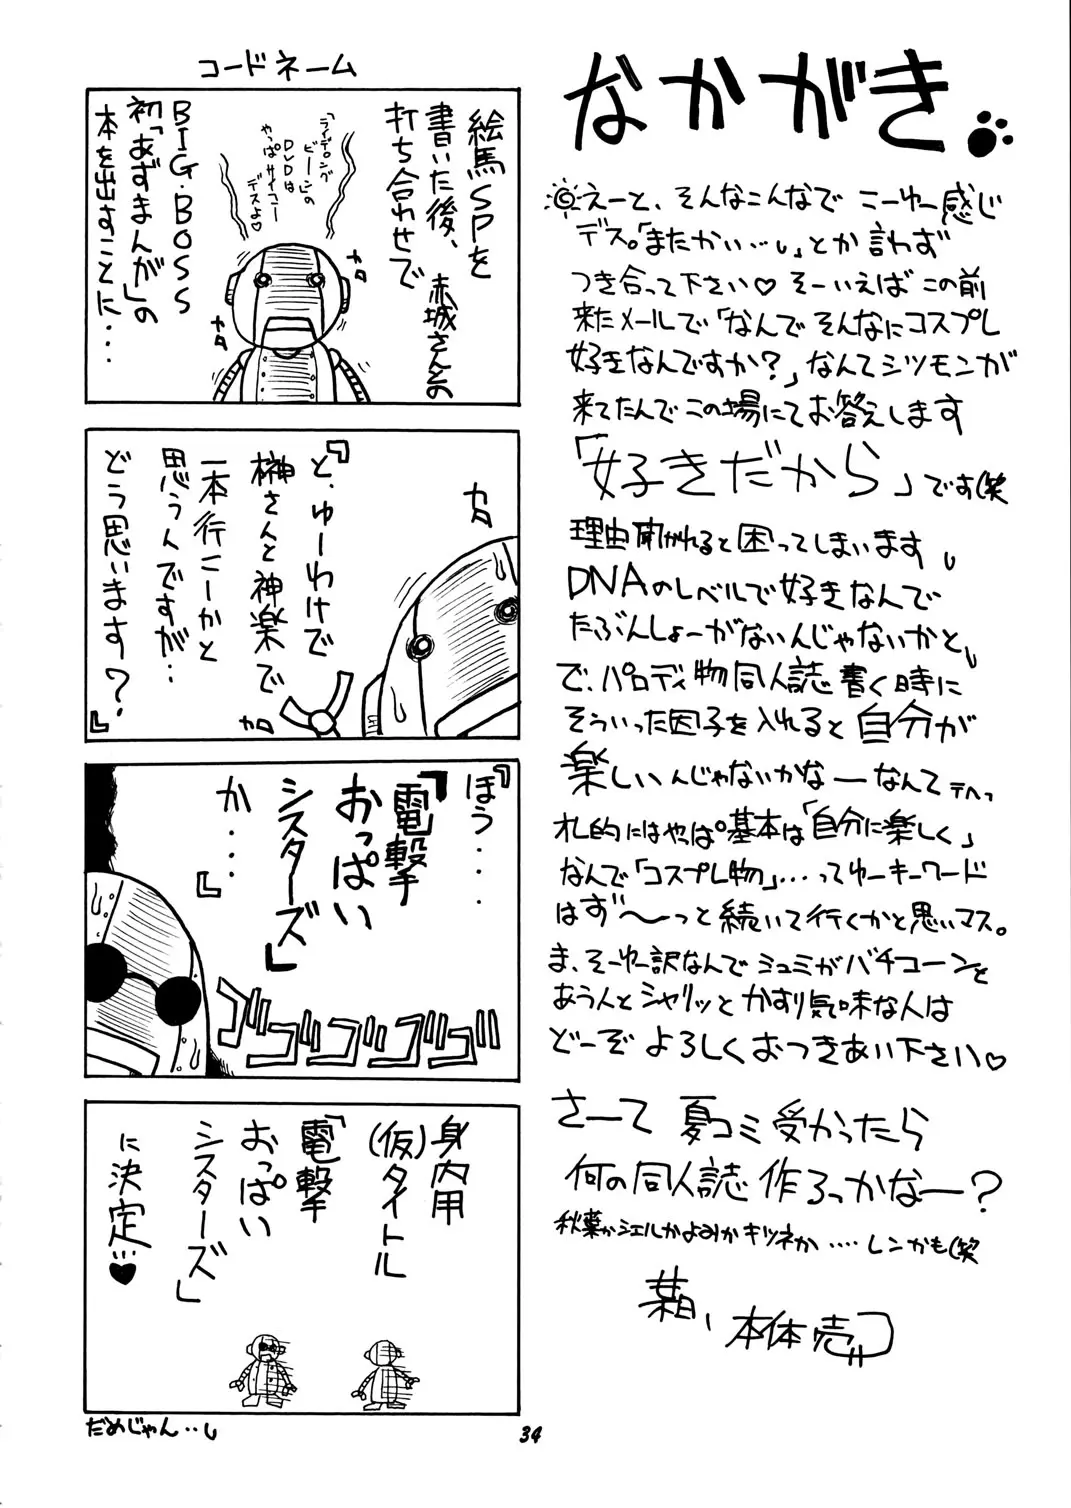 コードネーム
絵馬SPを
書いた後、赤城さんとの
打ち合わせで
「ライデンング
ビーン」の
DVDは
やっぱサイコー
デスよ♡
BIG・BOSS
初「あずまんが」の
本を出すことに・・・
カタ
カタ
『と、ゆーわけで
榊さんと神楽で
一本行こーかと
思うんですが・・
どう思います？』
カタ
カタ
『ほう・・・
『電撃
おっぱい
シスターズ』
か・・・』
ゴゴゴゴゴ
身内用
(仮)タイトル
「電撃
おっぱい
シスターズ」
に決定・・・♥
だめじゃん・・
なかがき
えーと、そんなこんなで こーゆー感じ
デス。「またかい・・・」とか言わず
つき合って下さい♡ そーいえばこの前
来たメールで「なんでそんなにコスプレ
好きなんですか？」なんてシツモンが
来てたんでこの場にてお答えします
「好きだから」です(笑
理由聞かれると困ってしまいます
DNAのレベルで好きなんで
たぶんしょーがないんじゃないかと
で、パロディ物同人誌書く時に
そういった因子を入れると自分が
楽しいんじゃないかなーなんて テヘっ
私的にはやっぱ基本は「自分に楽しく」
なんで「コスプレ物」・・・ってゆーキーワード
はず〜っと続いて行くかと思いマス。
ま、そーゆー訳なんでシュミがバチコーンと
あう人とシャリッとかすり気味な人は
どーぞよろしくおつきあい下さい♡
さーて 夏コミ受かったら
何の同人誌作ろっかなー？
秋葉かシエルかよみかキツネか・・・・レンかも(笑
本体売
34